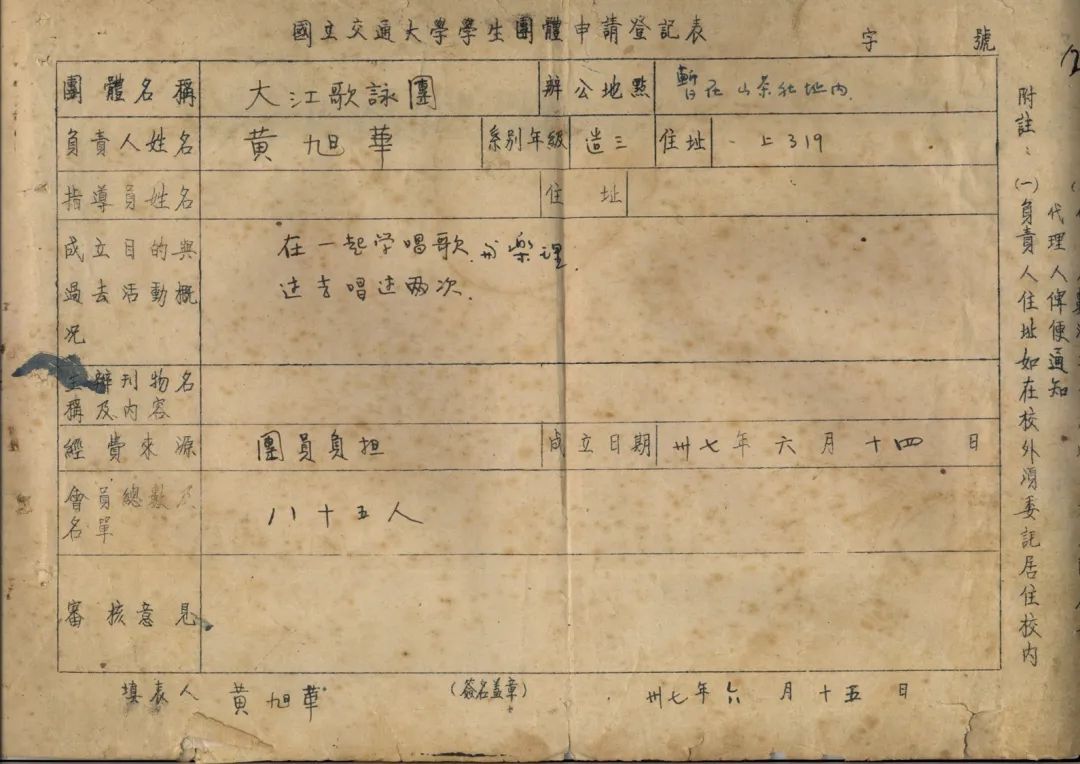 國立交通大學學生團體申請登記表
字 號
團體名稱 大江歌詠團 辦公地點 暫在山茶社址內
負責人姓名 黃旭華 系别年級 造三 住址 上319
指導員姓名 住址
成立目的與過去活動概況
在一起学唱歌.和樂理.
过去唱过两次.
主辦刊物名
稱及内容
經費來源 團員負担 成立日期 卅七年六月十四日
會員總數及
名單
八十五人
審核意見
填表人 黃旭華 (簽名盖章) 卅七年六月十五日
附註:(一)負責人住址如在校外須委託居住校内
代理人俾便通知